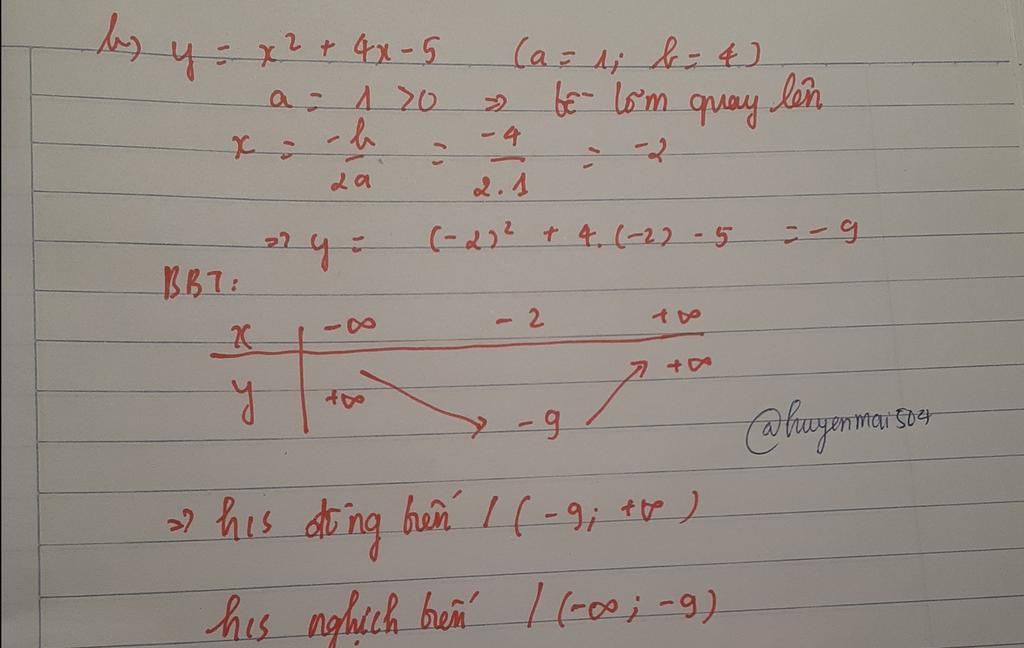 b) y = x² + 4x - 5 (a = 1; b = 4)
a = 1 > 0 => bề lõm quay lên
x = -b/2a = -4/2.1 = -2
=> y = (-2)² + 4.(-2) - 5 = -9
BBT:
x -∞ -2 +∞
y +∞ -9 +∞
@huyenmai504
=> h/s đồng biến / (-9; +∞)
h/s nghịch biến / (-∞; -9)